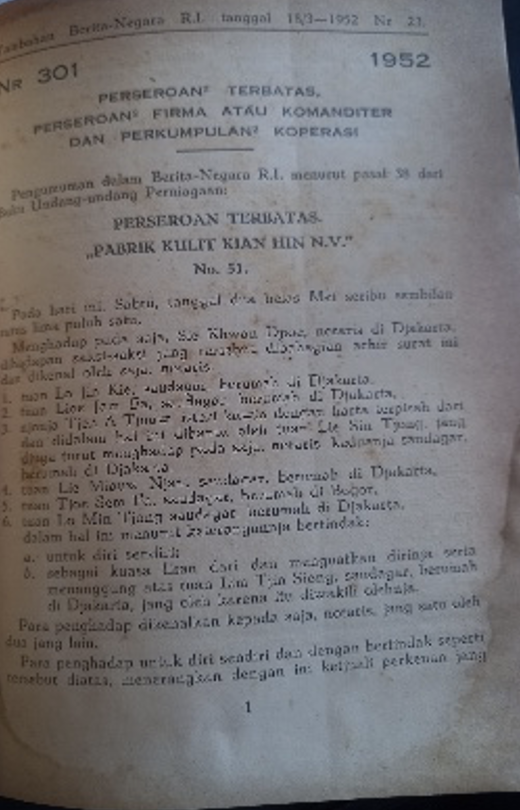 Tambahan Berita-Negara R.I. tanggal 18/3—1952 Nr 23.
Nr 301 1952
PERSEROAN² TERBATAS,
PERSEROAN² FIRMA ATAU KOMANDITER
DAN PERKUMPULAN² KOPERASI
Pengumuman dalam Berita-Negara R.I. menurut pasal 38 dari
Buku Undang-undang Perniagaan:
PERSEROAN TERBATAS.
„PABRIK KULIT KIAN HIN N.V."
No. 51.
Pada hari ini, Sabtu, tanggal dua belas Mei seribu sembilan
ratus lima puluh satu.
Menghadap pada saja, Sie Khwan Djoe, notaris di Djakarta,
dihadapan saksi-saksi jang dibahagian achir surat ini
dan dikenal oleh saja, notaris.
1. tuan Lo Jin Kie, saudagar, berumah di Djakarta,
2. tuan saudagar, berumah di Djakarta,
3. njonja Tjen A dengan harta terpisah dari
dan didalam hal ini dibantu oleh tuan Lie Sin Tjong, jang
djuga turut menghadap pada saja, notaris, saudagar,
berumah di Djakarta
4. tuan Lie saudagar, berumah di Djakarta,
5. tuan saudagar, berumah di Bogor,
6. tuan Lo Min Tjong saudagar, berumah di Djakarta,
dalam hal ini menurut keterangannja bertindak:
a. untuk diri sendiri;
b. sebagai kuasa lisan dari dan menguatkan dirinja serta
menanggung atas tuan Lim Tjin Siong, saudagar, berumah
di Djakarta, jang oleh karena itu diwakili olehnja.
Para penghadap dikenalkan kepada saja, notaris, jang satu oleh
dua jang lain.
Para penghadap untuk diri sendiri dan dengan bertindak seperti
tersebut diatas, menerangkan dengan ini ketjuali perkenan jang
1